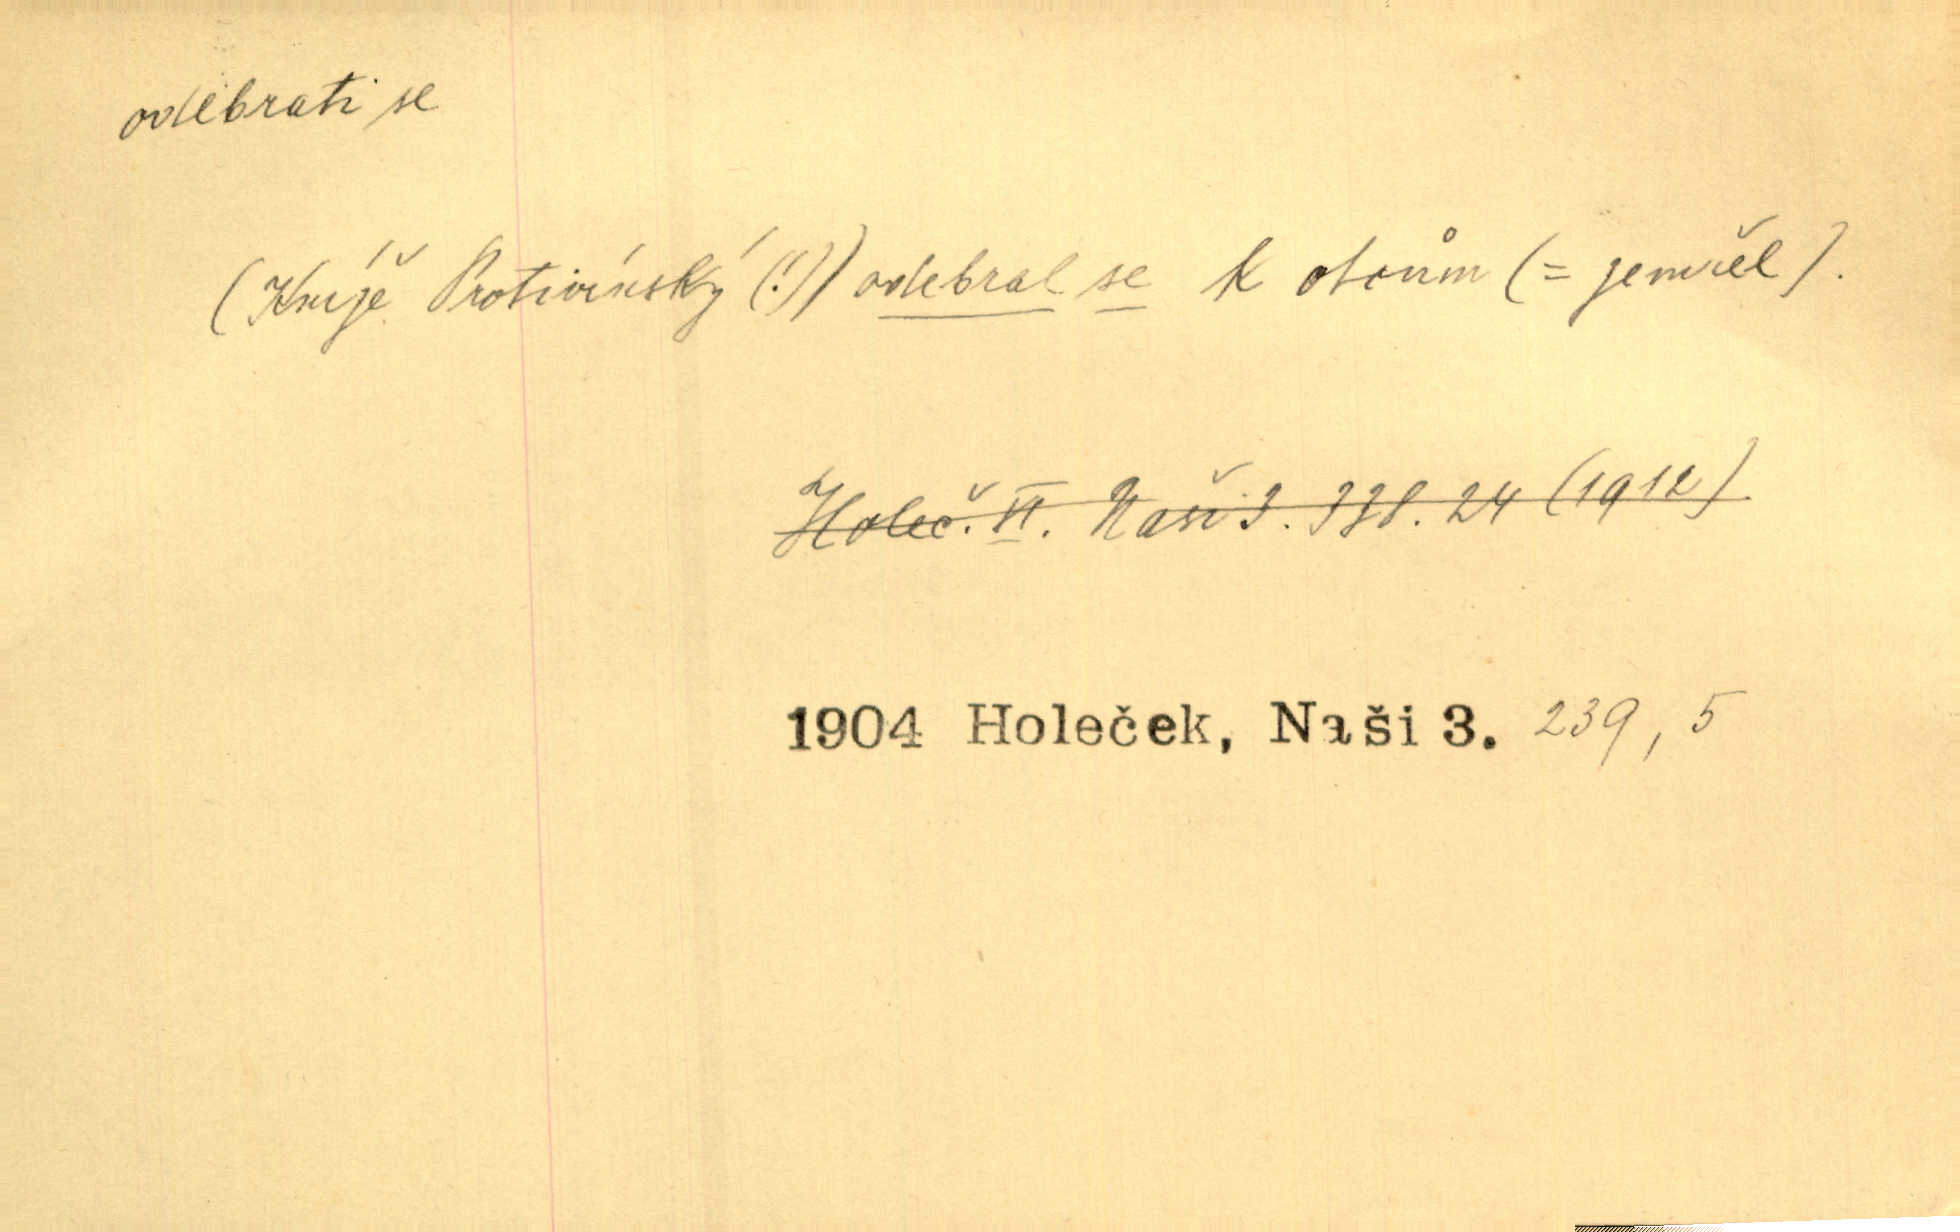 odebrati se
(Kníže Protivínský (!)) odebral se k otcům (= zemřel).
Holeč. VI. Naši 3. 338. 24 (1912).
1904 Holeček, Naši 3. 239, 5